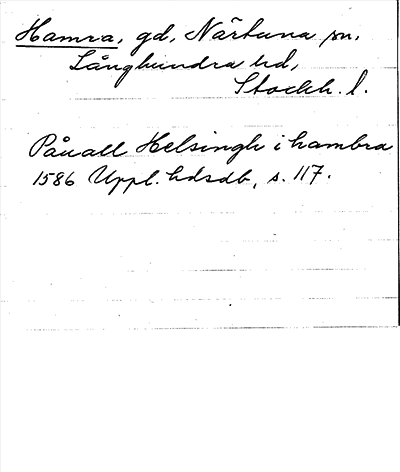 Hamra, gd, Närtuna sn,
Långhundra hd,
Stockh. l.
Påuall Helsingh i hambra
1586 Uppl. hdsdb, s. 117.